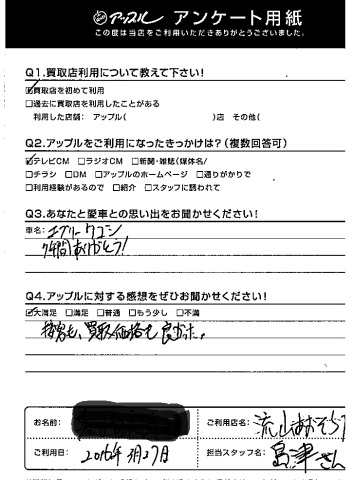 アップル アンケート用紙
この度は当店をご利用いただきありがとうございました。
Q1.買取店利用について教えて下さい!
☑買取店を初めて利用
□過去に買取店を利用したことがある
利用した店舗: アップル( )店 その他(
Q2.アップルをご利用になったきっかけは?(複数回答可)
☑テレビCM □ラジオCM □新聞・雑誌(媒体名/
□チラシ □DM □アップルのホームページ □通りがかりで
□利用経験があるので □紹介 □スタッフに誘われて
Q3.あなたと愛車との思い出をお聞かせください!
車名: エブリーワゴン
7年間ありがとう!
Q4.アップルに対する感想をぜひお聞かせください!
☑大満足 □満足 □普通 □もう少し □不満
接客も、買取価格も良かった。
お名前:
ご利用店名: 流山おおたか
ご利用日: 2016年 3月27日
担当スタッフ名: 島津さん